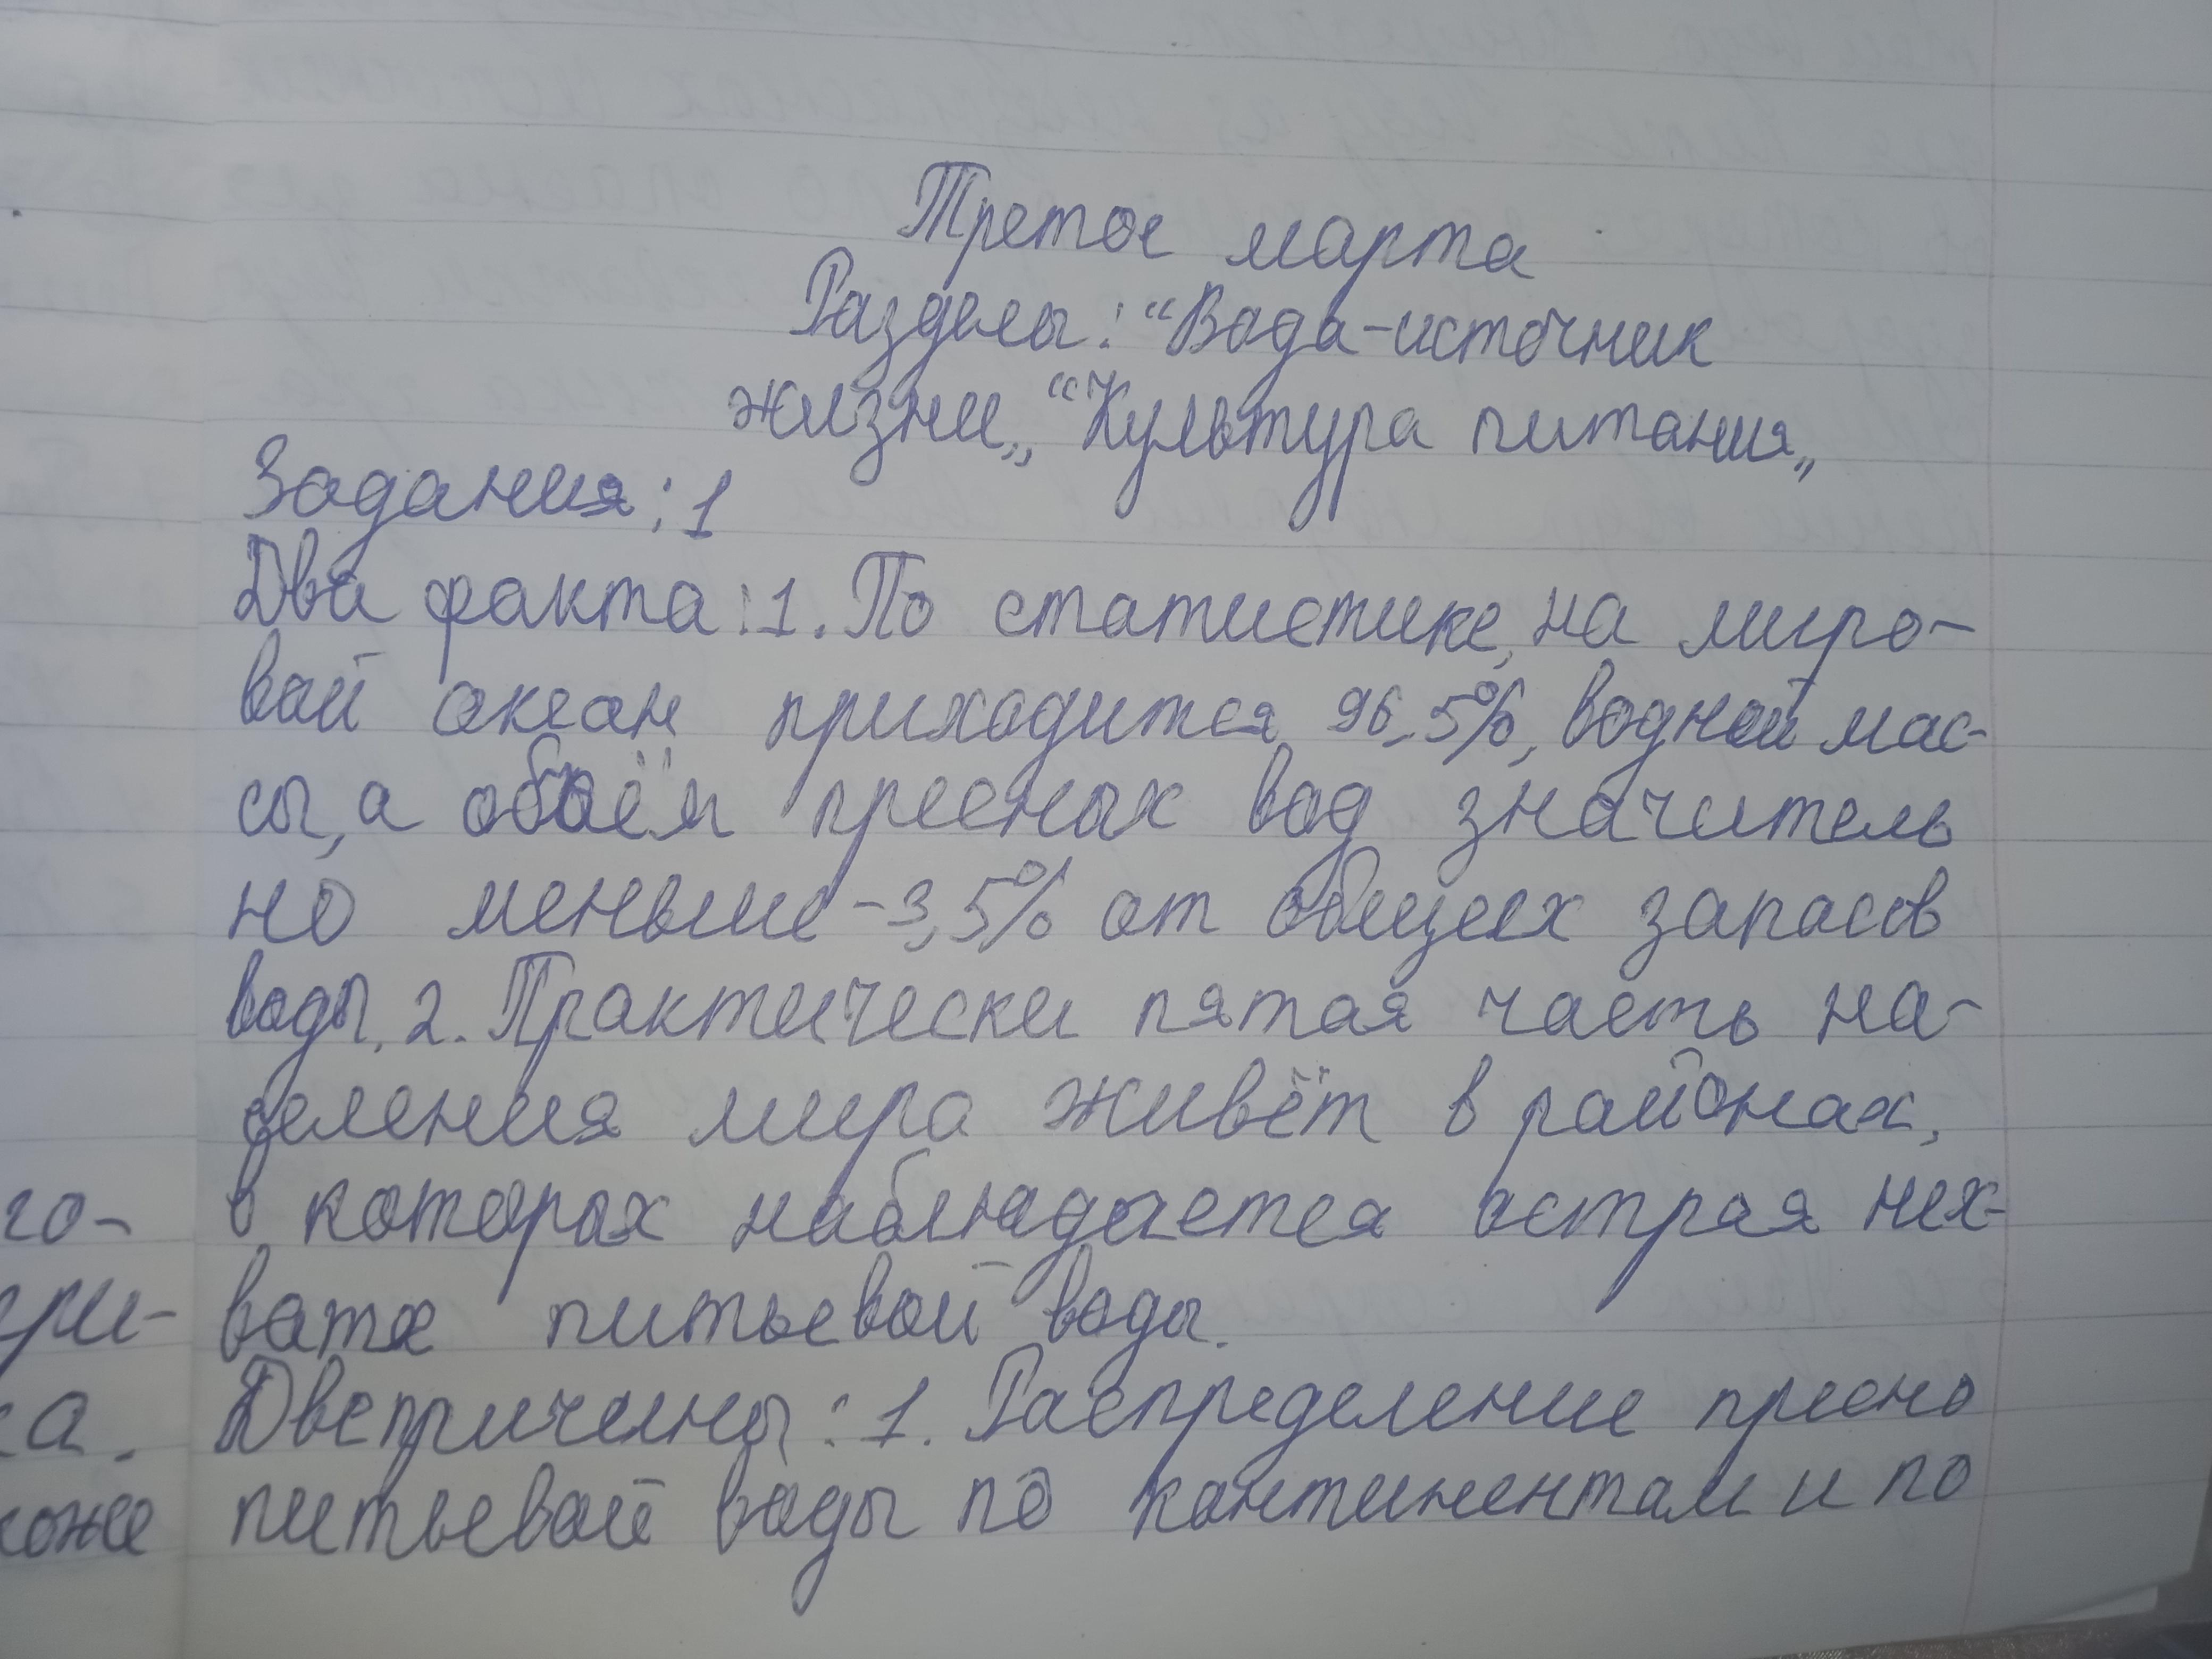 Третое марта
Разделы: "Вода-источник
жизни„ "Культура питания„
Задания: 1
Два факта: 1. По статистике, на миро-
вой океан приходится 96,5%, водной мас-
сы, а объём пресных вод значитель
но меньше - 3,5% от общих запасов
воды. 2. Практически пятая часть на-
селения мира живёт в районах,
в которых наблюдается острая нех-
ватка питьевой воды.
Две причины: 1. Распределение пресно
питьевой воды по континентам и по
го-
ри-
ка.
коже